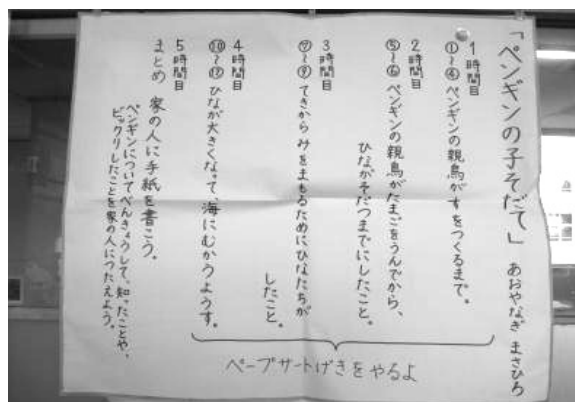 「ペンギンの子そだて」 あおやなぎ まさひろ
1時間目
①〜④ ペンギンの親鳥がすをつくるまで。
2時間目
⑤〜⑥ ペンギンの親鳥がたまごをうんでから、
ひながそだつまでにしたこと。
3時間目
⑦〜⑨ てきからみをまもるためにひなたちが
したこと。
4時間目
⑩〜⑫ ひなが大きくなって、海にむかうようす。
5時間目
まとめ 家の人に手紙を書こう。
ペンギンについてべんきょうして、知ったことや、
ビックリしたことを家の人につたえよう。
ペープサートげきをやるよ